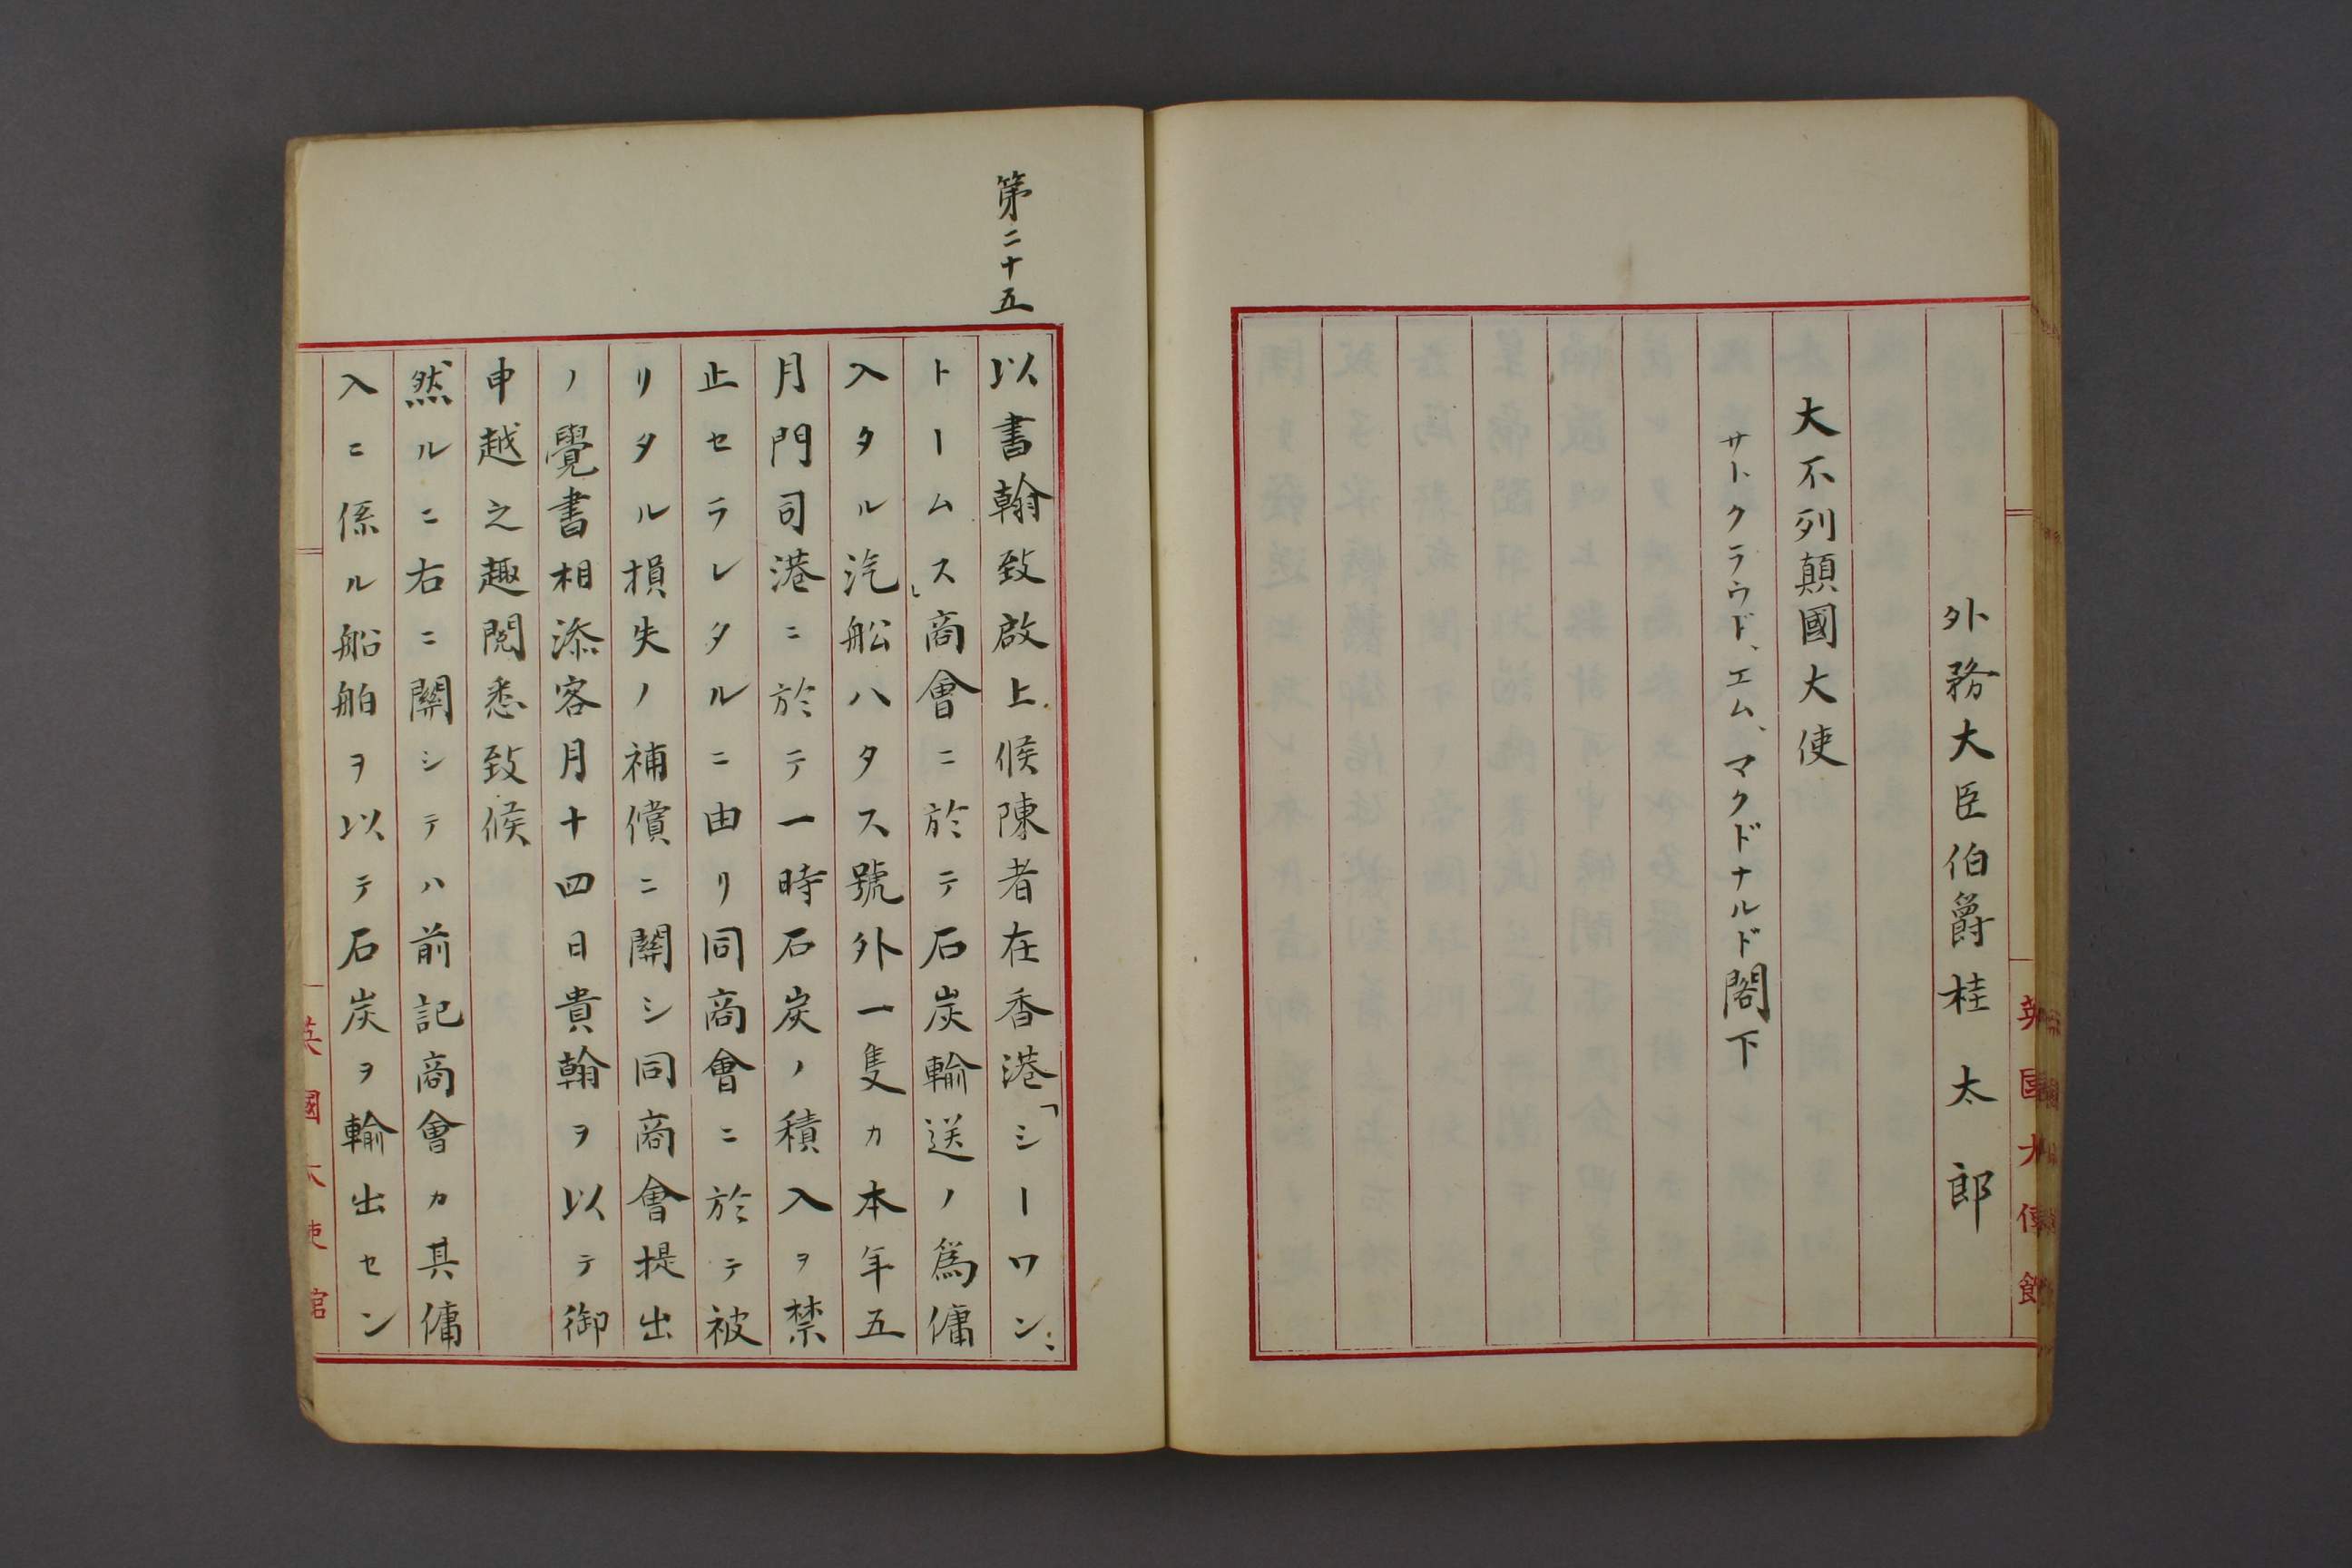 外務大臣伯爵桂太郎
大不列顛國大使
サトクラウド、エム、マクドナルド閣下
英國大使館
第二十五
以書翰致啟上候陳者在香港「シーワン、
トームス」商會ニ於テ石炭輸送ノ爲傭
入タル汽船ハタス號外一隻カ本年五
月門司港ニ於テ一時石炭ノ積入ヲ禁
止セラレタルニ由リ同商會ニ於テ被
リタル損失ノ補償ニ關シ同商會提出
ノ覺書相添客月十四日貴翰ヲ以テ御
申越之趣閱悉致候
然ルニ右ニ關シテハ前記商會カ其傭
入ニ係ル船舶ヲ以テ石炭ヲ輸出セン
英國大使館